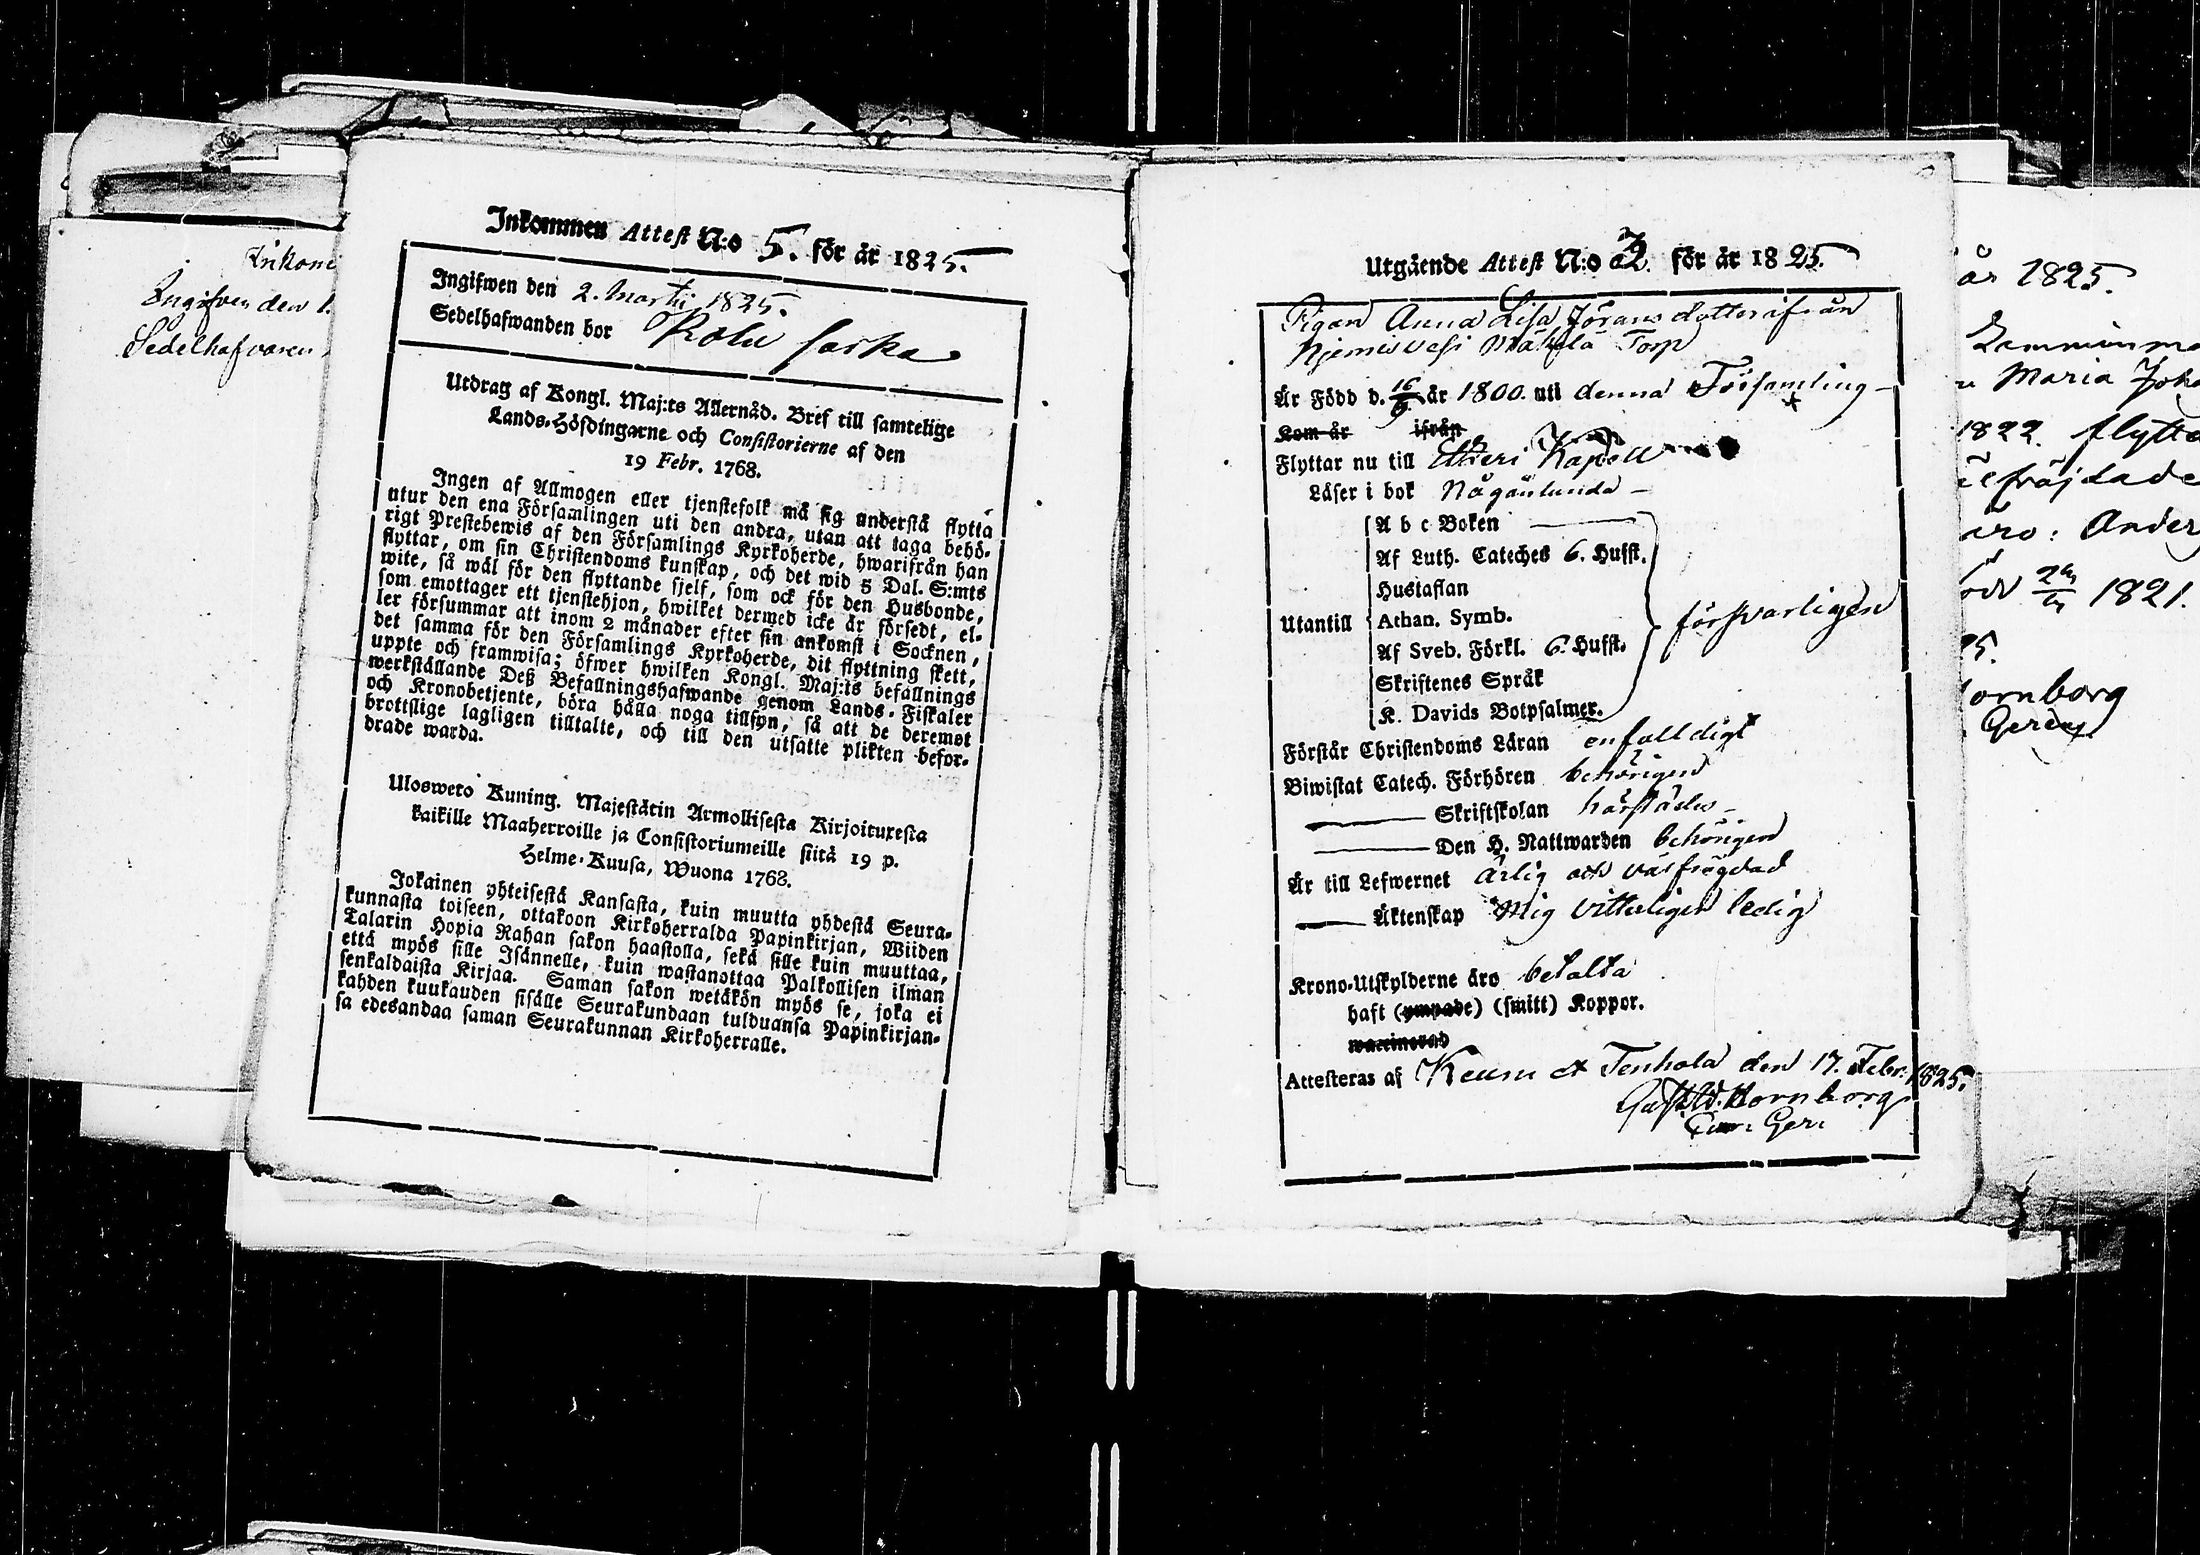 Inkom
Ingifven den 1.
Sedelhafvaren
Inkommen Attest N:o 5. för år 1825.
Ingifwen den 2. Martii 1825.
Sedelhafwanden bor Kolu
Utdrag af Kongl. Maj:ts Allernåd. Bref till samtelige
Lands-Höfdingarne och Consistorierne af den
19 Febr. 1768.
Ingen af Allmogen eller tjenstefolk må sig understå flytta
utur den ena Församlingen uti den andra, utan att taga behö-
rigt Prestebewis af den Församlings Kyrkoherde, hwarifrån han
flyttar, om sin Christendoms kunskap, och det wid 5 Dal. S:mts
wite, så wäl för den flyttande sjelf, som ock för den Husbonde,
som emottager ett tjenstehjon, hwilket dermed icke är försedt, el-
ler försummar att inom 2 månader efter sin ankomst i Socknen,
det samma för den Församlings Kyrkoherde, dit flyttning skett,
uppte och framwisa; öfwer hwilken Kongl. Maj:ts befallnings
werkställande Deß Befallningshafwande genom Lands-Fiskaler
och Kronobetjente, böra hålla noga tillsyn, så att de deremot
brottslige lagligen tilltalte, och till den utsatte plikten befor-
drade warda.
Uloswето Kuning. Majestätin Armollisesta Kirjoituxesta
kaikille Maaherroille ja Consistoriumeille siitä 19 p.
Helme-Kuusa, Wuona 1768.
Jokainen yhteisestä Kansasta, kuin muutta yhdestä Seura-
kunnasta toiseen, ottakoon Kirkoherralda Papinkirjan, Wiiden
Talarin Hopia Rahan sakon haastolla, sekä sille kuin muuttaa,
että myös sille Isännelle, kuin wastanottaa Palkollisen ilman
senkaldaista Kirjaa. Saman sakon wetäkön myös se, joka ei
kahden kuukauden sisälle Seurakundaan tulduansa Papinkirjan-
sa edesandaa saman Seurakunnan Kirkoherralle.
Utgående Attest N:o 2. för år 1825.
Pigan Anna Lisa Jöransdotter ifrån
Njemisvesi Mäkelä Torp
Är Född d. 16/9 år 1800. uti denna Församling
Kom år ifrån
Flyttar nu till Etseri Kapell
Läser i bok Någånlunda
A b c Boken
Af Luth. Cateches 6. Hufst.
Hustaflan
Utantill Athan. Symb. försvarligen
Af Sveb. Förkl. 6. Hufst.
Skriftenes Språk
K. Davids Botpsalmer.
Förstår Christendoms Läran enfalldigt
Biwistat Catech. Förhören behörigen
Skriftskolan härstädes
Den H. Nattwarden behörigen
Är till Lefwernet ärlig och välfrägdad
Äktenskap Mig vitterligen ledig
Krono-Utskylderne äro betalta
haft (ympade) (smitt) Koppor.
Attesteras af Keuru et Tenhola den 17. Febr. 1825.
Gust. W. Hornborg
Geri
år 1825.
Maria Joh
1822. flytta
fräjdade
äro: Ander
1821.
25.
ornborg
Gerens